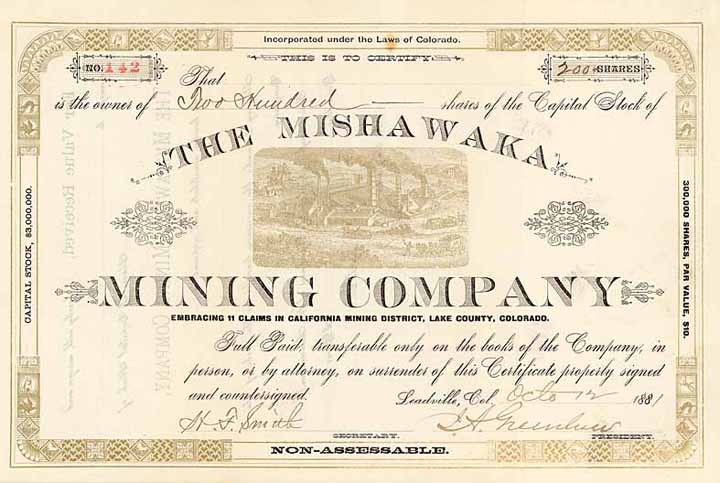 Incorporated under the Laws of Colorado.
THIS IS TO CERTIFY
NO. 142
That
200 SHARES
is the owner of Two Hundred shares of the Capital Stock of
THE MISHAWAKA
MINING COMPANY
EMBRACING 11 CLAIMS IN CALIFORNIA MINING DISTRICT, LAKE COUNTY, COLORADO.
Full Paid, transferable only on the books of the Company, in
person, or by attorney, on surrender of this Certificate properly signed
and countersigned. Leadville, Col. Octo 12 1881
H. F. Smith
SECRETARY.
PRESIDENT.
NON-ASSESSABLE.
CAPITAL STOCK, $3,000,000.
300,000 SHARES, PAR VALUE, $10.
For Value Received